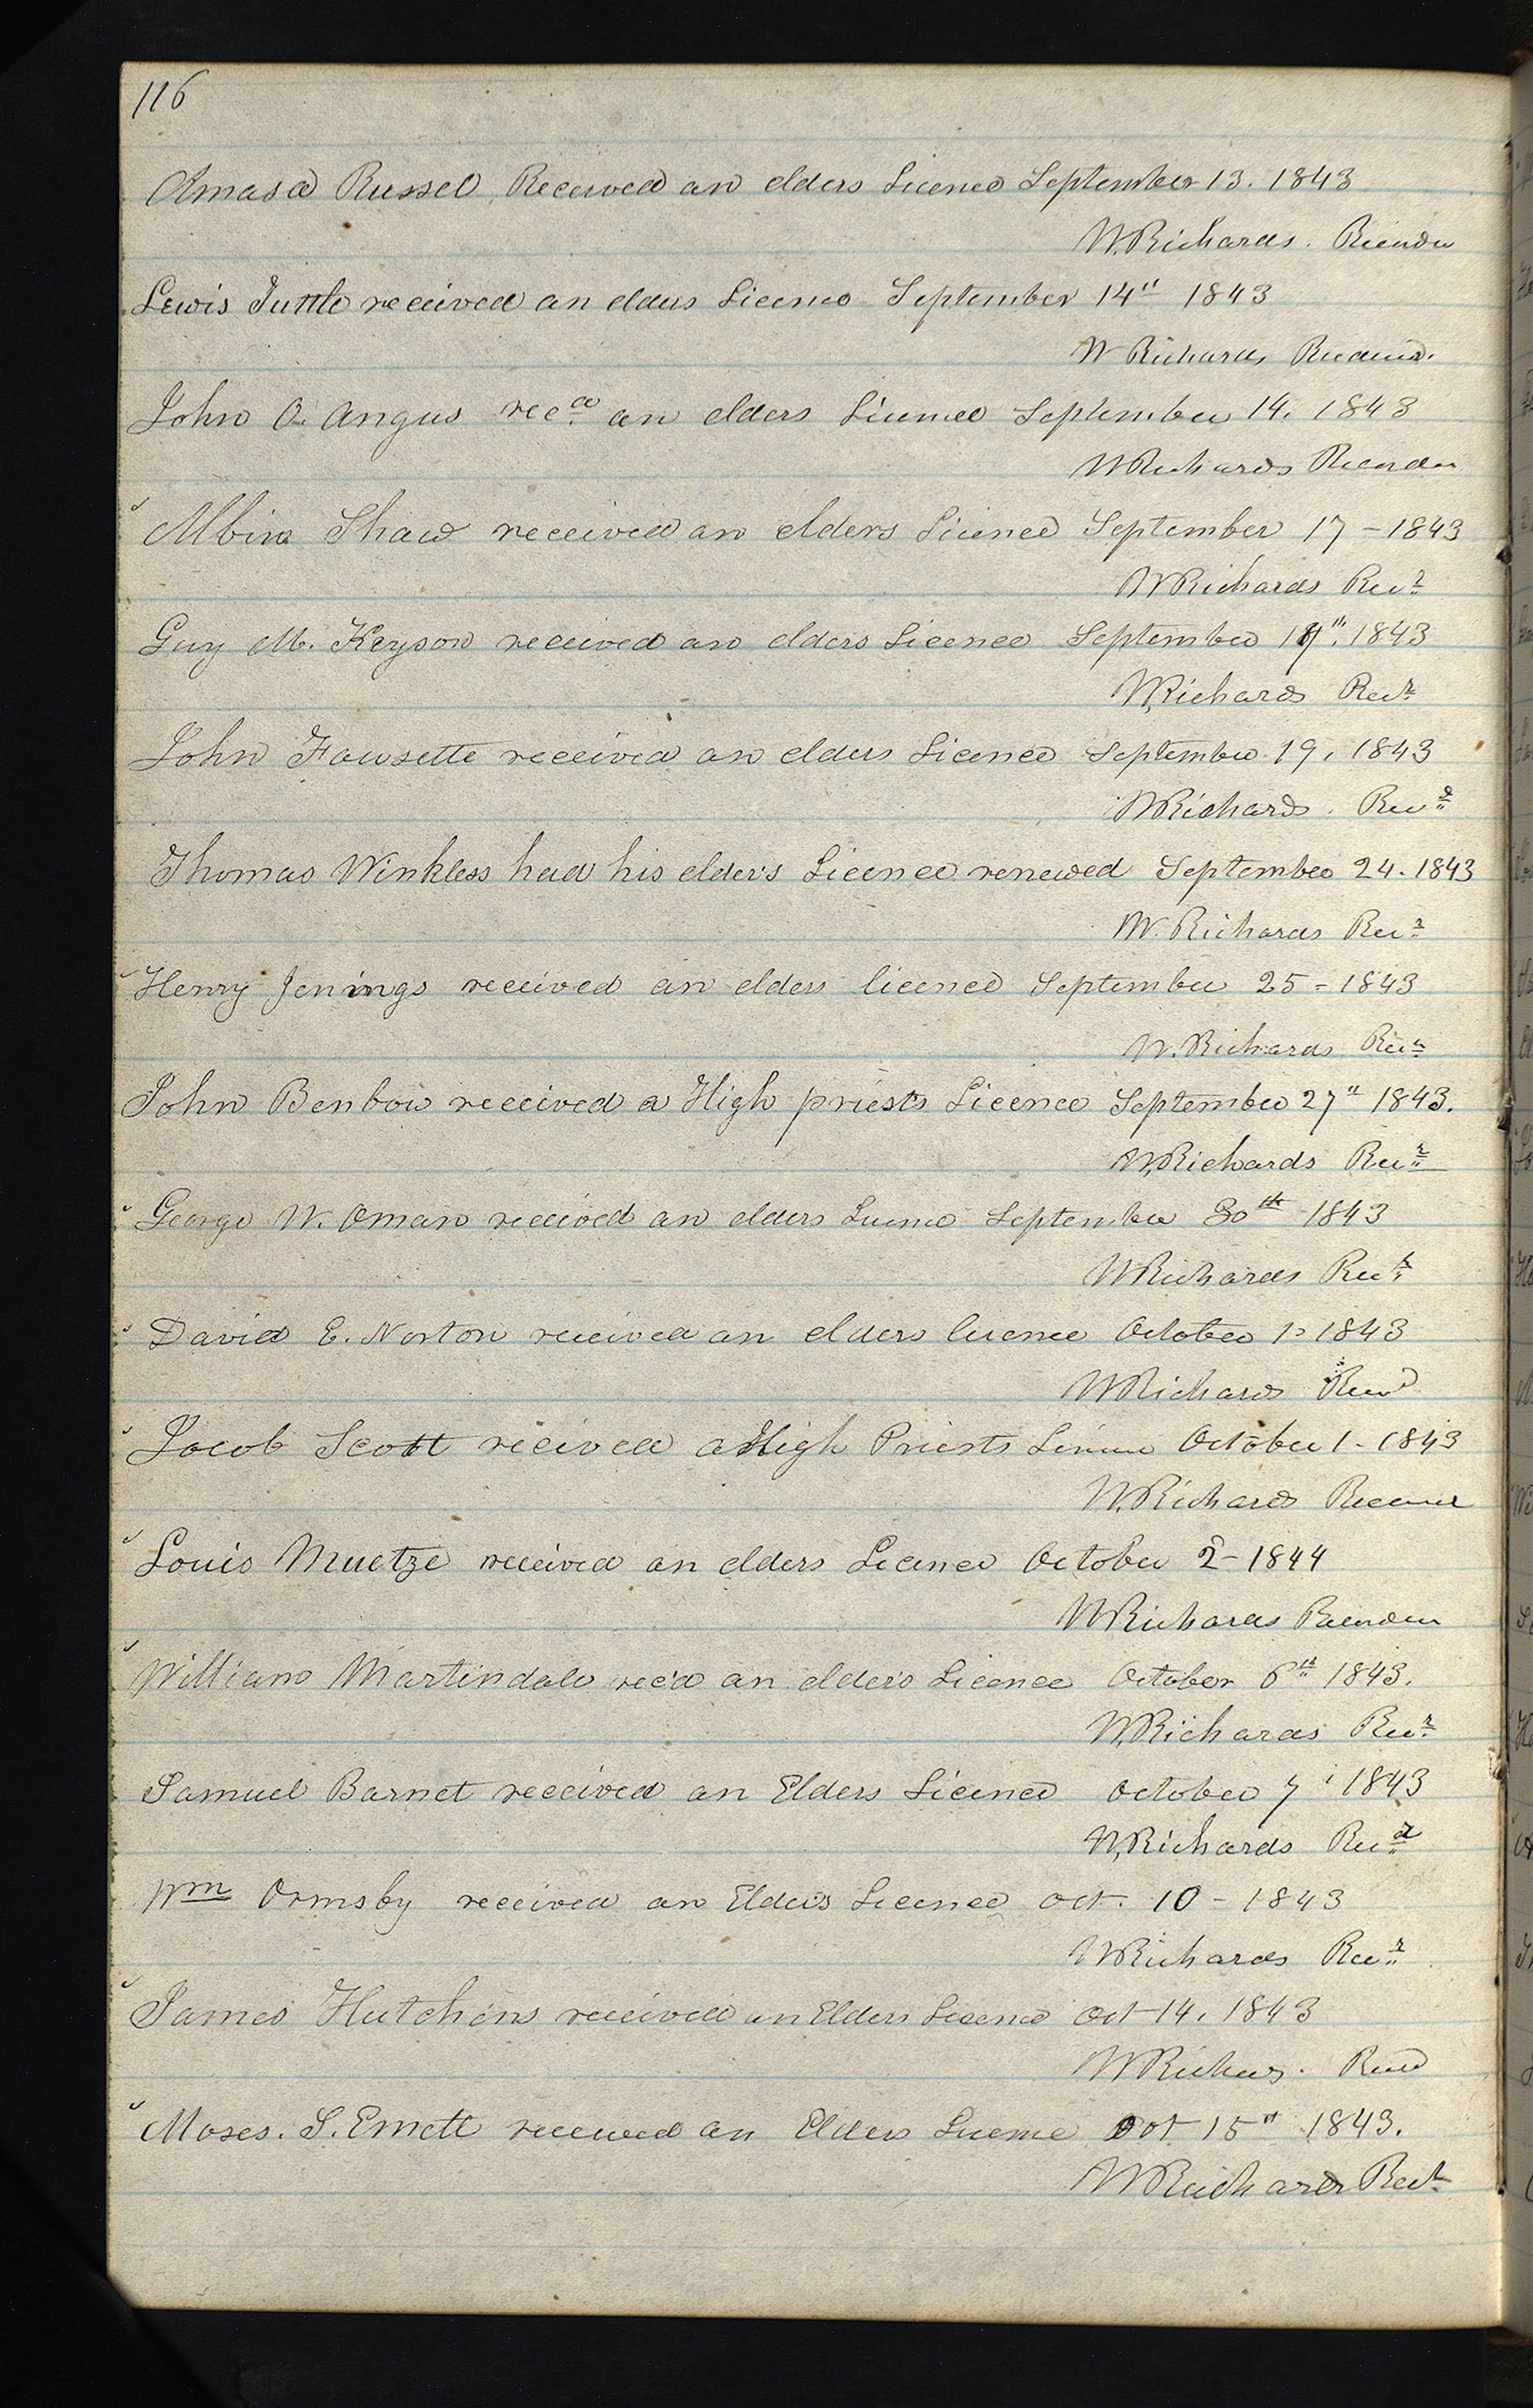 116
Amasa Russel, Received an elders Licence September 13. 1843
W. Richards. Recorder
Lewis Tuttle received an elders Licence September 14" 1843
W Richards Recorder.
John O. Angus recd an elders Licence September 14, 1843
W Richards Recorder
Albin Shaw received an elders Licence September 17 - 1843
W Richards Recr
Guy M. Keyson received an elders Licence September 19". 1843
W, Richards Recr
John Fawsette received an elders Licence September 19, 1843
W Richards. Recr
Thomas Winkless had his elder's Licence renewed September 24. 1843
W. Richards Recr
Henry Jenings received an elders licence September 25 - 1843
W. Richards Recr
John Benbow received a High priests Licence September 27" 1843.
W, Richards Recr
George W. Oman received an elders Licence September 30th 1843
W Richards Recr
David E. Norton received an elders licence October 1 - 1843
W Richards Recr
Jacob Scott received a High Priests Licence October 1 - 1843
W. Richards Recorder
Louis Muetze received an elders Licence October 2 - 1844
W Richards Recorder
William Martindale rec'd an elder's Licence October 6th 1843.
W. Richards Recr
Samuel Barnet received an Elders Licence October 7 1843
W, Richards Recr
Wm Ormsby received an Elders Licence Oct. 10 - 1843
W Richards Recr
James Hutchins received an Elders Licence Oct 14, 1843
W Richards. Recr
Moses. S. Emett received an Elders Licence Oct 15" 1843.
W Richards Recr